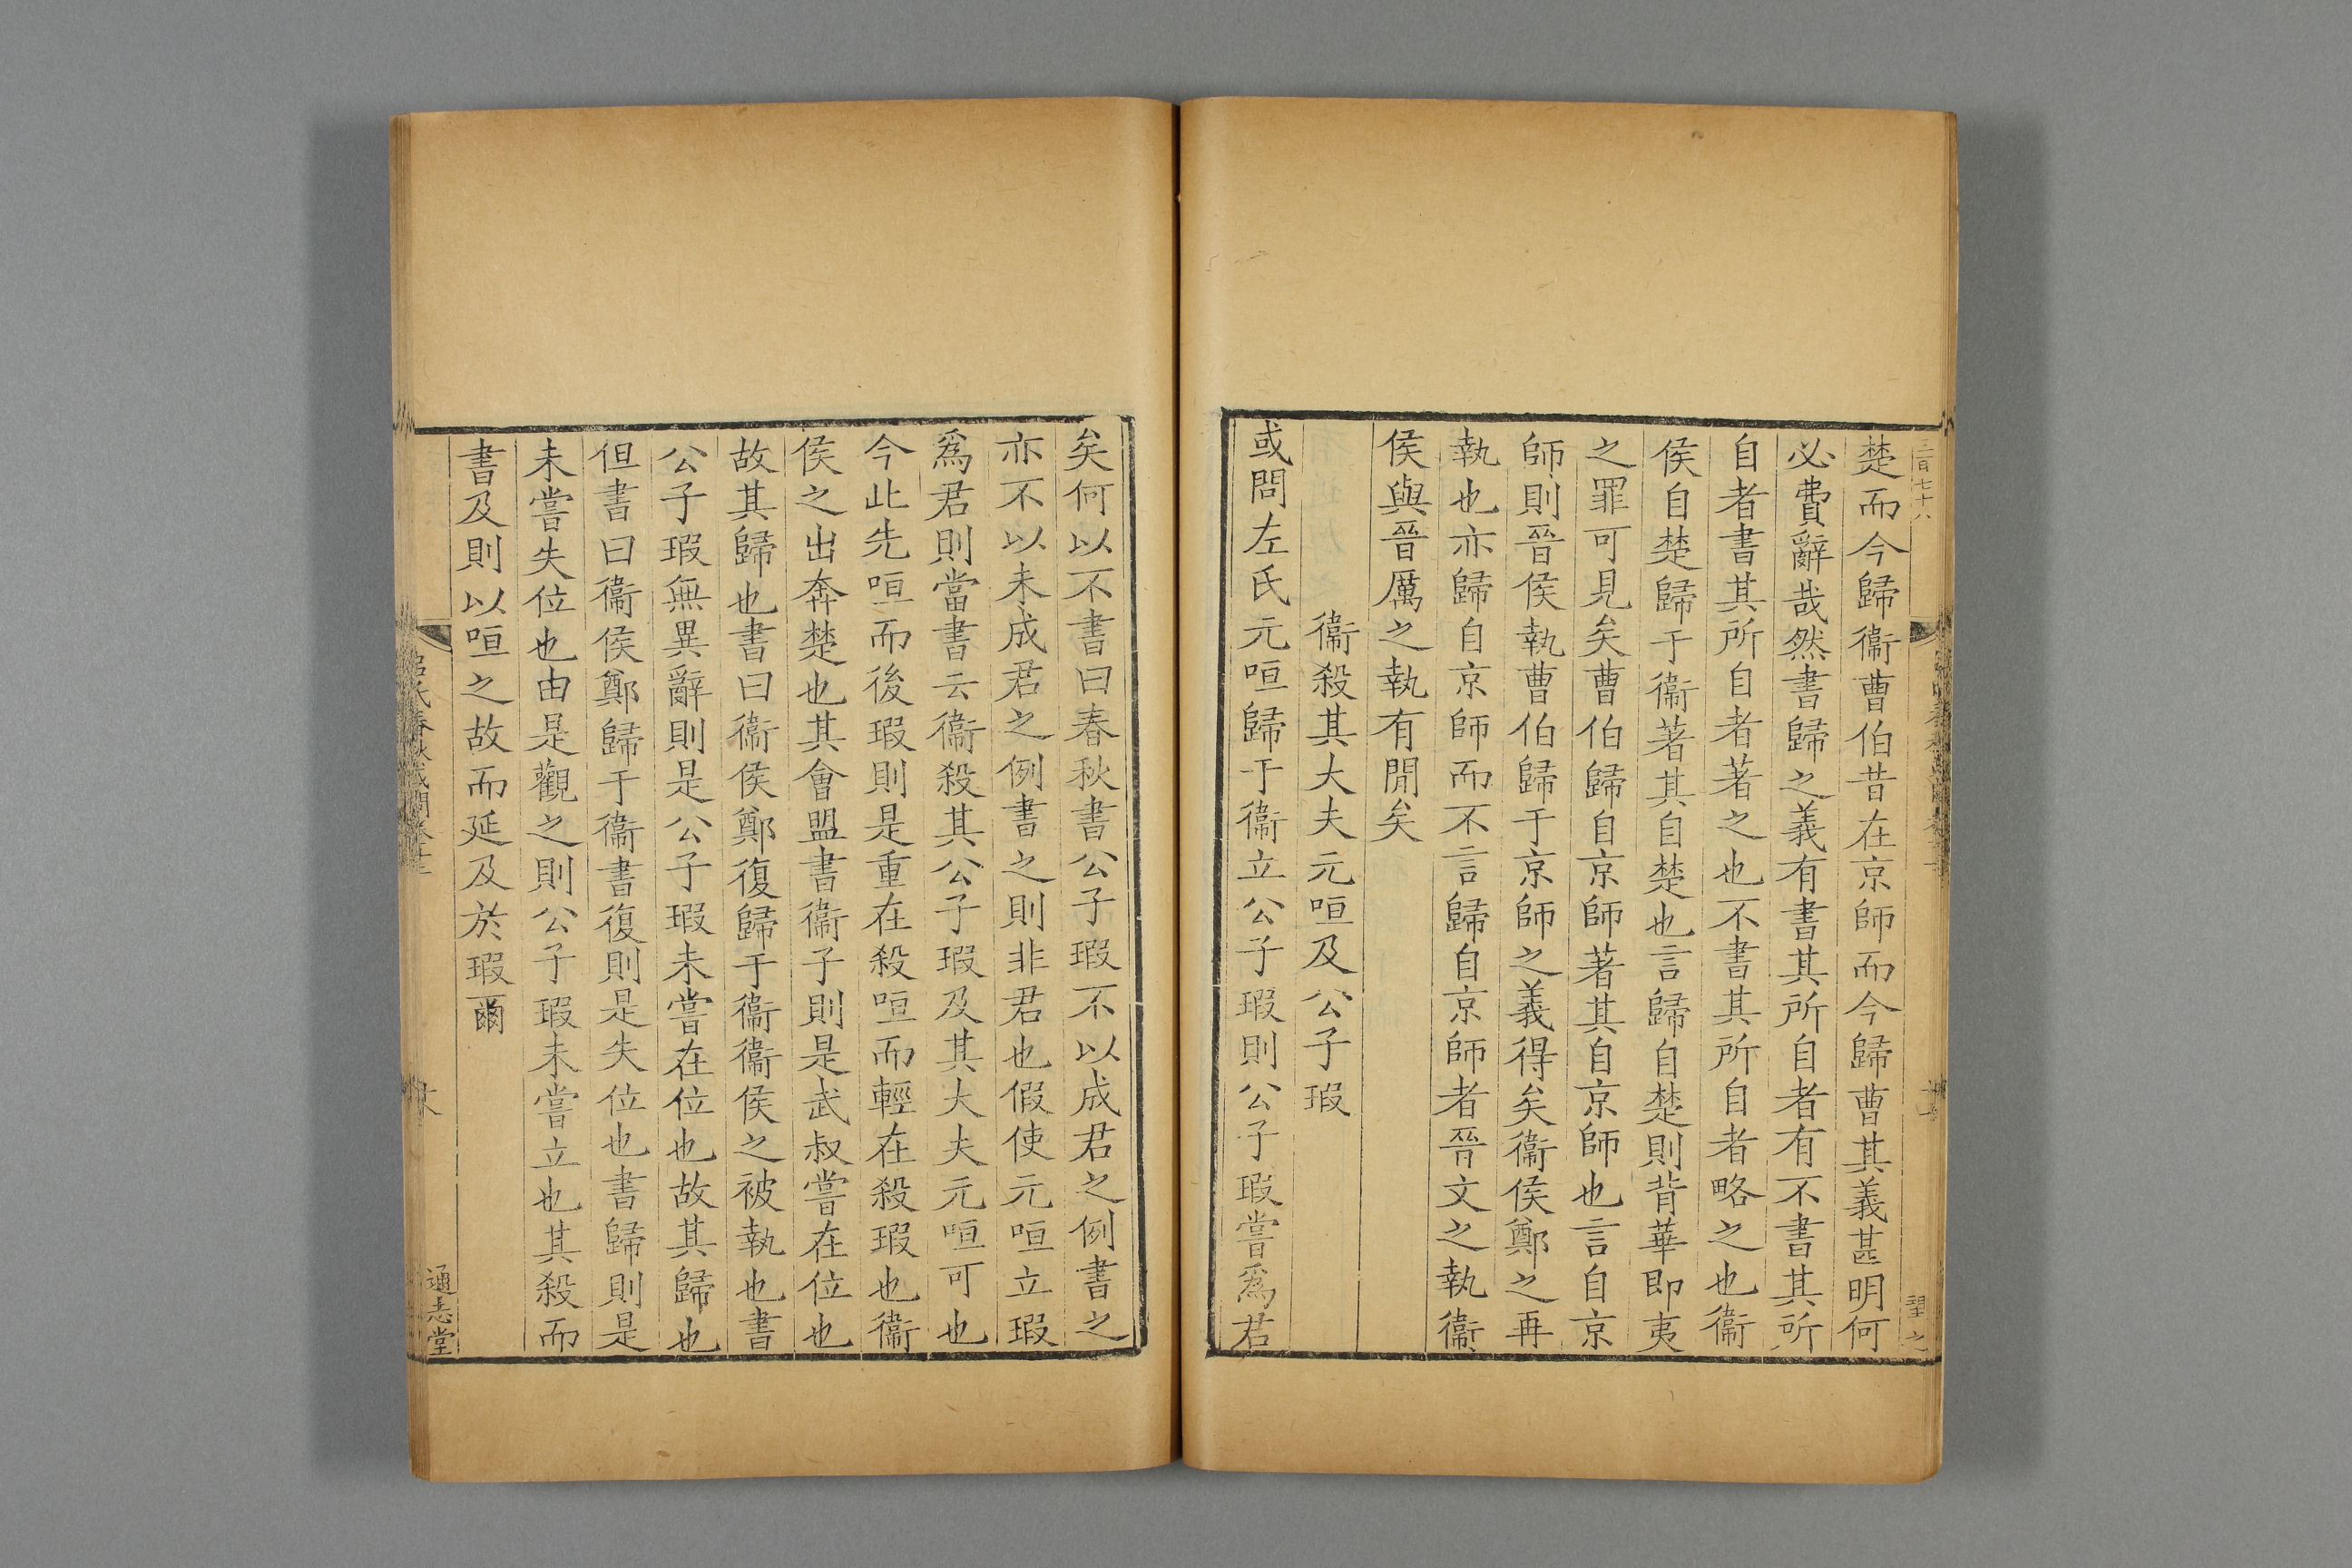 三百七十八
楚而今歸衞曹伯昔在京師而今歸曹其義甚明何
必費辭哉然書歸之義有書其所自者有不書其所
自者書其所自者著之也不書其所自者略之也衞
侯自楚歸于衞著其自楚也言歸自楚則背華即夷
之罪可見矣曹伯歸自京師著其自京師也言自京
師則晉侯執曹伯歸于京師之義得矣衞侯鄭之再
執也亦歸自京師而不言歸自京師者晉文之執衞
侯與晉厲之執有間矣
衞殺其大夫元咺及公子瑕
或問左氏元咺歸于衞立公子瑕則公子瑕嘗爲君
矣何以不書曰春秋書公子瑕不以成君之例書之
亦不以未成君之例書之則非君也假使元咺立瑕
爲君則當書云衞殺其公子瑕及其大夫元咺可也
今此先咺而後瑕則是重在殺咺而輕在殺瑕也衞
侯之出奔楚也其會盟書衞子則是武叔嘗在位也
故其歸也書曰衞侯鄭復歸于衞衞侯之被執也書
公子瑕無異辭則是公子瑕未嘗在位也故其歸也
但書曰衞侯鄭歸于衞書復則是失位也書歸則是
未嘗失位也由是觀之則公子瑕未嘗立也其殺而
書及則以咺之故而延及於瑕爾
呂氏春秋或問卷十三
通志堂